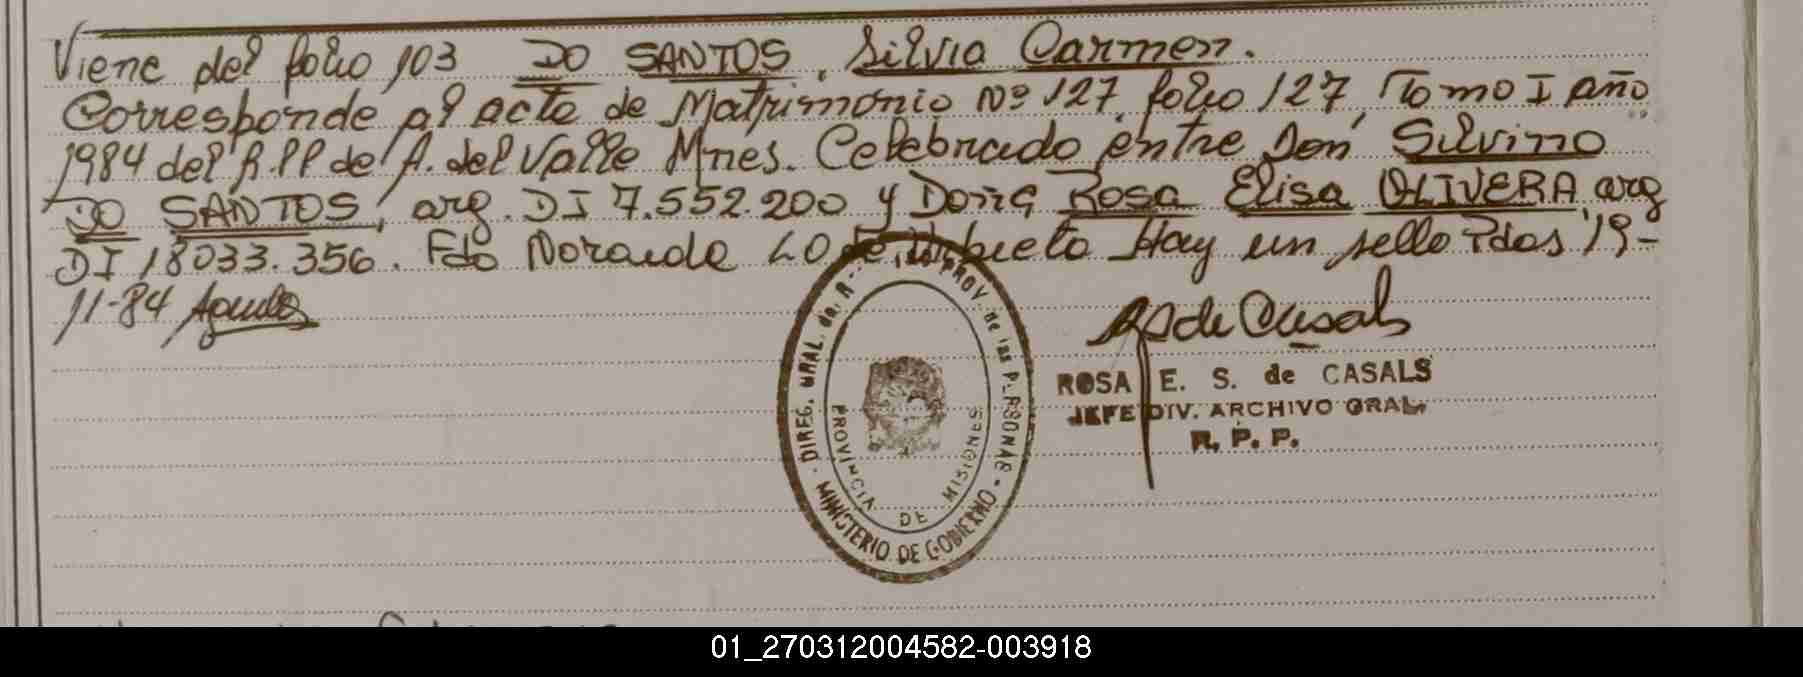 Viene del folio 103 DO SANTOS, Silvia Carmen.
Corresponde al acta de Matrimonio Nº 127, folio 127, Tomo I año
1984 del R.PP de A. del Valle Mnes. Celebrado entre Don Silvino
DO SANTOS, arg. DI 7.552.200 y Doña Rosa Elisa OLIVERA, arg
DI 18033.356. Fdo Hay un sello Pdas 19-
11-84
DIREC. GRAL. del R PROV. de las PERSONAS
MINISTERIO DE GOBIERNO
PROVINCIA DE MISIONES
RS de Casals
ROSA E. S. de CASALS
JEFE DIV. ARCHIVO GRAL.
R. P. P.
01_270312004582-003918